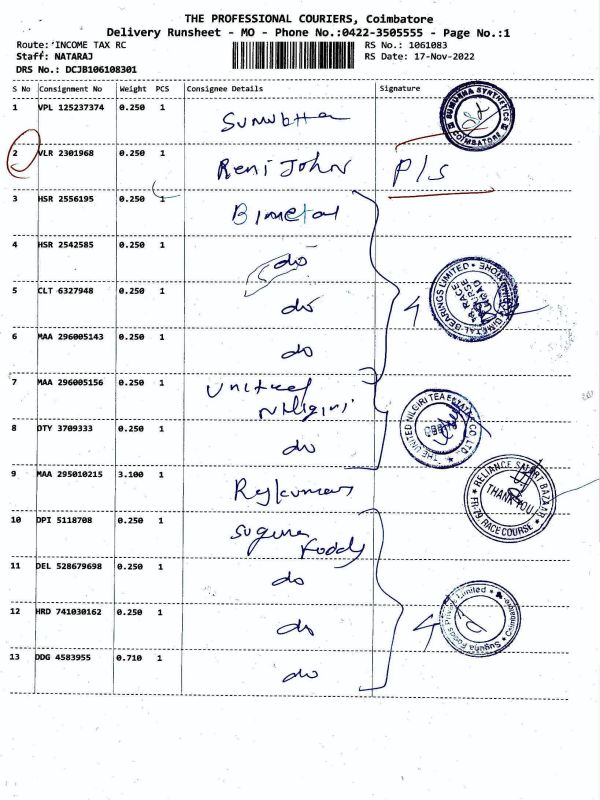 THE PROFESSIONAL COURIERS, Coimbatore
Delivery Runsheet - MO - Phone No.:0422-3505555 - Page No.:1
Route: 'INCOME TAX RC
RS No.: 1061083
Staff: NATARAJ
RS Date: 17-Nov-2022
DRS No.: DCJB106108301
S No Consignment No Weight PCS Consignee Details Signature
1 VPL 125237374 0.250 1
SUGUNA SYNTHETICS COIMBATORE
2 VLR 2301968 0.250 1 Reni John P/s
3 HSR 2556195 0.250 1 Bimetal
4 HSR 2542585 0.250 1 do
4
BIMETAL BEARINGS LIMITED
5 CLT 6327948 0.250 1 do
6 MAA 296005143 0.250 1 do
7 MAA 296005156 0.250 1 United
Nilgiri
THE UNITED NILGIRI TEA ESTATES CO. LTD.
8 OTY 3709333 0.250 1 do
9 MAA 295010215 3.100 1 Rajkumar
RELIANCE SMART BAZAAR
THANK YOU
RACE COURSE
10 DPI 5118708 0.250 1 Suguna
Foods
11 DEL 528679698 0.250 1 do
12 HRD 741030162 0.250 1 do
4
Suguna Foods Private Limited Coimbatore
13 DDG 4583955 0.710 1 do